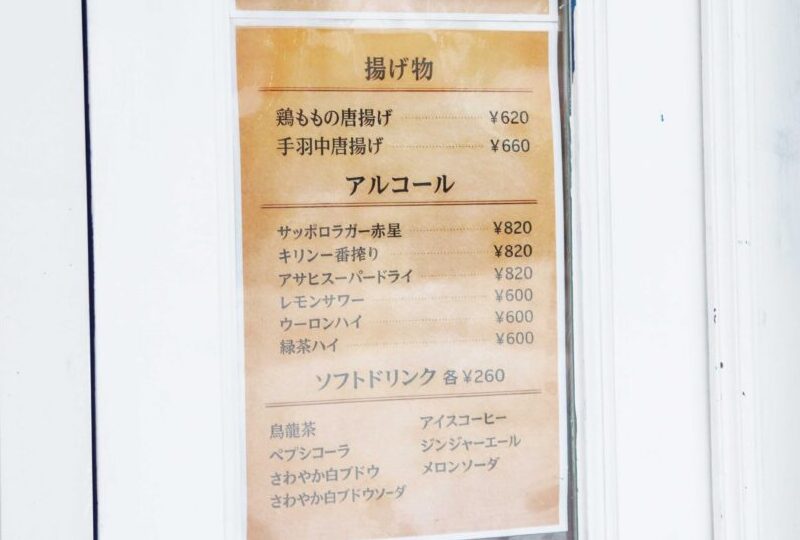 揚げ物
鶏ももの唐揚げ ¥620
手羽中唐揚げ ¥660
アルコール
サッポロラガー赤星 ¥820
キリン一番搾り ¥820
アサヒスーパードライ ¥820
レモンサワー ¥600
ウーロンハイ ¥600
緑茶ハイ ¥600
ソフトドリンク 各¥260
烏龍茶
ペプシコーラ
さわやか白ブドウ
さわやか白ブドウソーダ
アイスコーヒー
ジンジャーエール
メロンソーダ